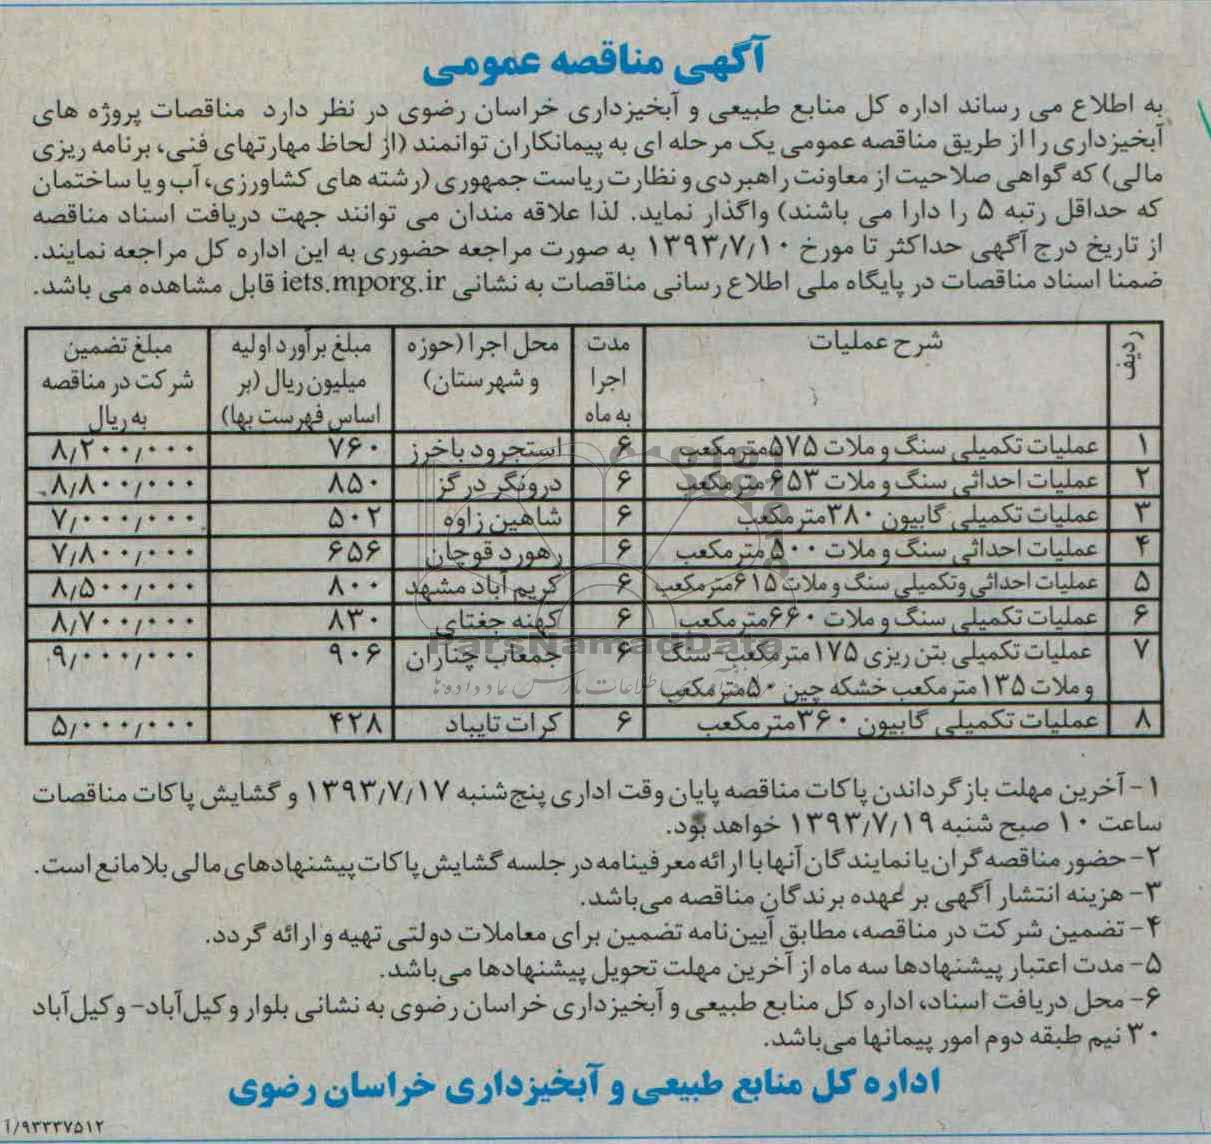 آگهی مناقصه عمومی
به اطلاع می رساند اداره کل منابع طبیعی و آبخیزداری خراسان رضوی در نظر دارد مناقصات پروژه های
آبخیزداری را از طریق مناقصه عمومی یک مرحله ای به پیمانکاران توانمند (از لحاظ مهارتهای فنی، برنامه ریزی
مالی) که گواهی صلاحیت از معاونت راهبردی و نظارت ریاست جمهوری (رشته های کشاورزی، آب و یا ساختمان
که حداقل رتبه ۵ را دارا می باشند) واگذار نماید. لذا علاقه مندان می توانند جهت دریافت اسناد مناقصه
از تاریخ درج آگهی حداکثر تا مورخ ۱۳۹۳/۷/۱۰ به صورت مراجعه حضوری به این اداره کل مراجعه نمایند.
ضمنا اسناد مناقصات در پایگاه ملی اطلاع رسانی مناقصات به نشانی iets.mporg.ir قابل مشاهده می باشد.
ردیف | شرح عملیات | مدت اجرا به ماه | محل اجرا (حوزه و شهرستان) | مبلغ برآورد اولیه میلیون ریال (بر اساس فهرست بها) | مبلغ تضمین شرکت در مناقصه به ریال
۱ | عملیات تکمیلی سنگ و ملات ۵۷۵مترمکعب | ۶ | استجرود باخرز | ۷۶۰ | ۸/۲۰۰/۰۰۰
۲ | عملیات احداثی سنگ و ملات ۶۵۳ مترمکعب | ۶ | درونگر درگز | ۸۵۰ | ۸/۸۰۰/۰۰۰
۳ | عملیات تکمیلی گابیون ۳۸۰مترمکعب | ۶ | شاهین زاوه | ۵۰۲ | ۷/۰۰۰/۰۰۰
۴ | عملیات احداثی سنگ و ملات ۵۰۰ مترمکعب | ۶ | رهورد قوچان | ۶۵۶ | ۷/۸۰۰/۰۰۰
۵ | عملیات احداثی وتکمیلی سنگ و ملات ۶۱۵مترمکعب | ۶ | کریم آباد مشهد | ۸۰۰ | ۸/۵۰۰/۰۰۰
۶ | عملیات تکمیلی سنگ و ملات ۶۶۰مترمکعب | ۶ | کهنه جغتای | ۸۳۰ | ۸/۷۰۰/۰۰۰
۷ | عملیات تکمیلی بتن ریزی ۱۷۵ مترمکعب-سنگ و ملات ۱۳۵ مترمکعب خشکه چین ۵۰مترمکعب | ۶ | جمعاب چناران | ۹۰۶ | ۹/۰۰۰/۰۰۰
۸ | عملیات تکمیلی گابیون ۳۶۰مترمکعب | ۶ | کرات تایباد | ۴۲۸ | ۵/۰۰۰/۰۰۰
ParsNamadData
۱- آخرین مهلت بازگرداندن پاکات مناقصه پایان وقت اداری پنج‌شنبه ۱۳۹۳/۷/۱۷ و گشایش پاکات مناقصات
ساعت ۱۰ صبح شنبه ۱۳۹۳/۷/۱۹ خواهد بود.
۲- حضور مناقصه گران یا نمایندگان آنها با ارائه معرفینامه در جلسه گشایش پاکات پیشنهادهای مالی بلامانع است.
۳- هزینه انتشار آگهی بر عهده برندگان مناقصه می‌باشد.
۴- تضمین شرکت در مناقصه، مطابق آیین‌نامه تضمین برای معاملات دولتی تهیه و ارائه گردد.
۵- مدت اعتبار پیشنهادها سه ماه از آخرین مهلت تحویل پیشنهادها می‌باشد.
۶- محل دریافت اسناد، اداره کل منابع طبیعی و آبخیزداری خراسان رضوی به نشانی بلوار وکیل‌آباد- وکیل‌آباد
۳۰ نیم طبقه دوم امور پیمانها می‌باشد.
اداره کل منابع طبیعی و آبخیزداری خراسان رضوی
۹۳۳۳۷۵۱۲/آ